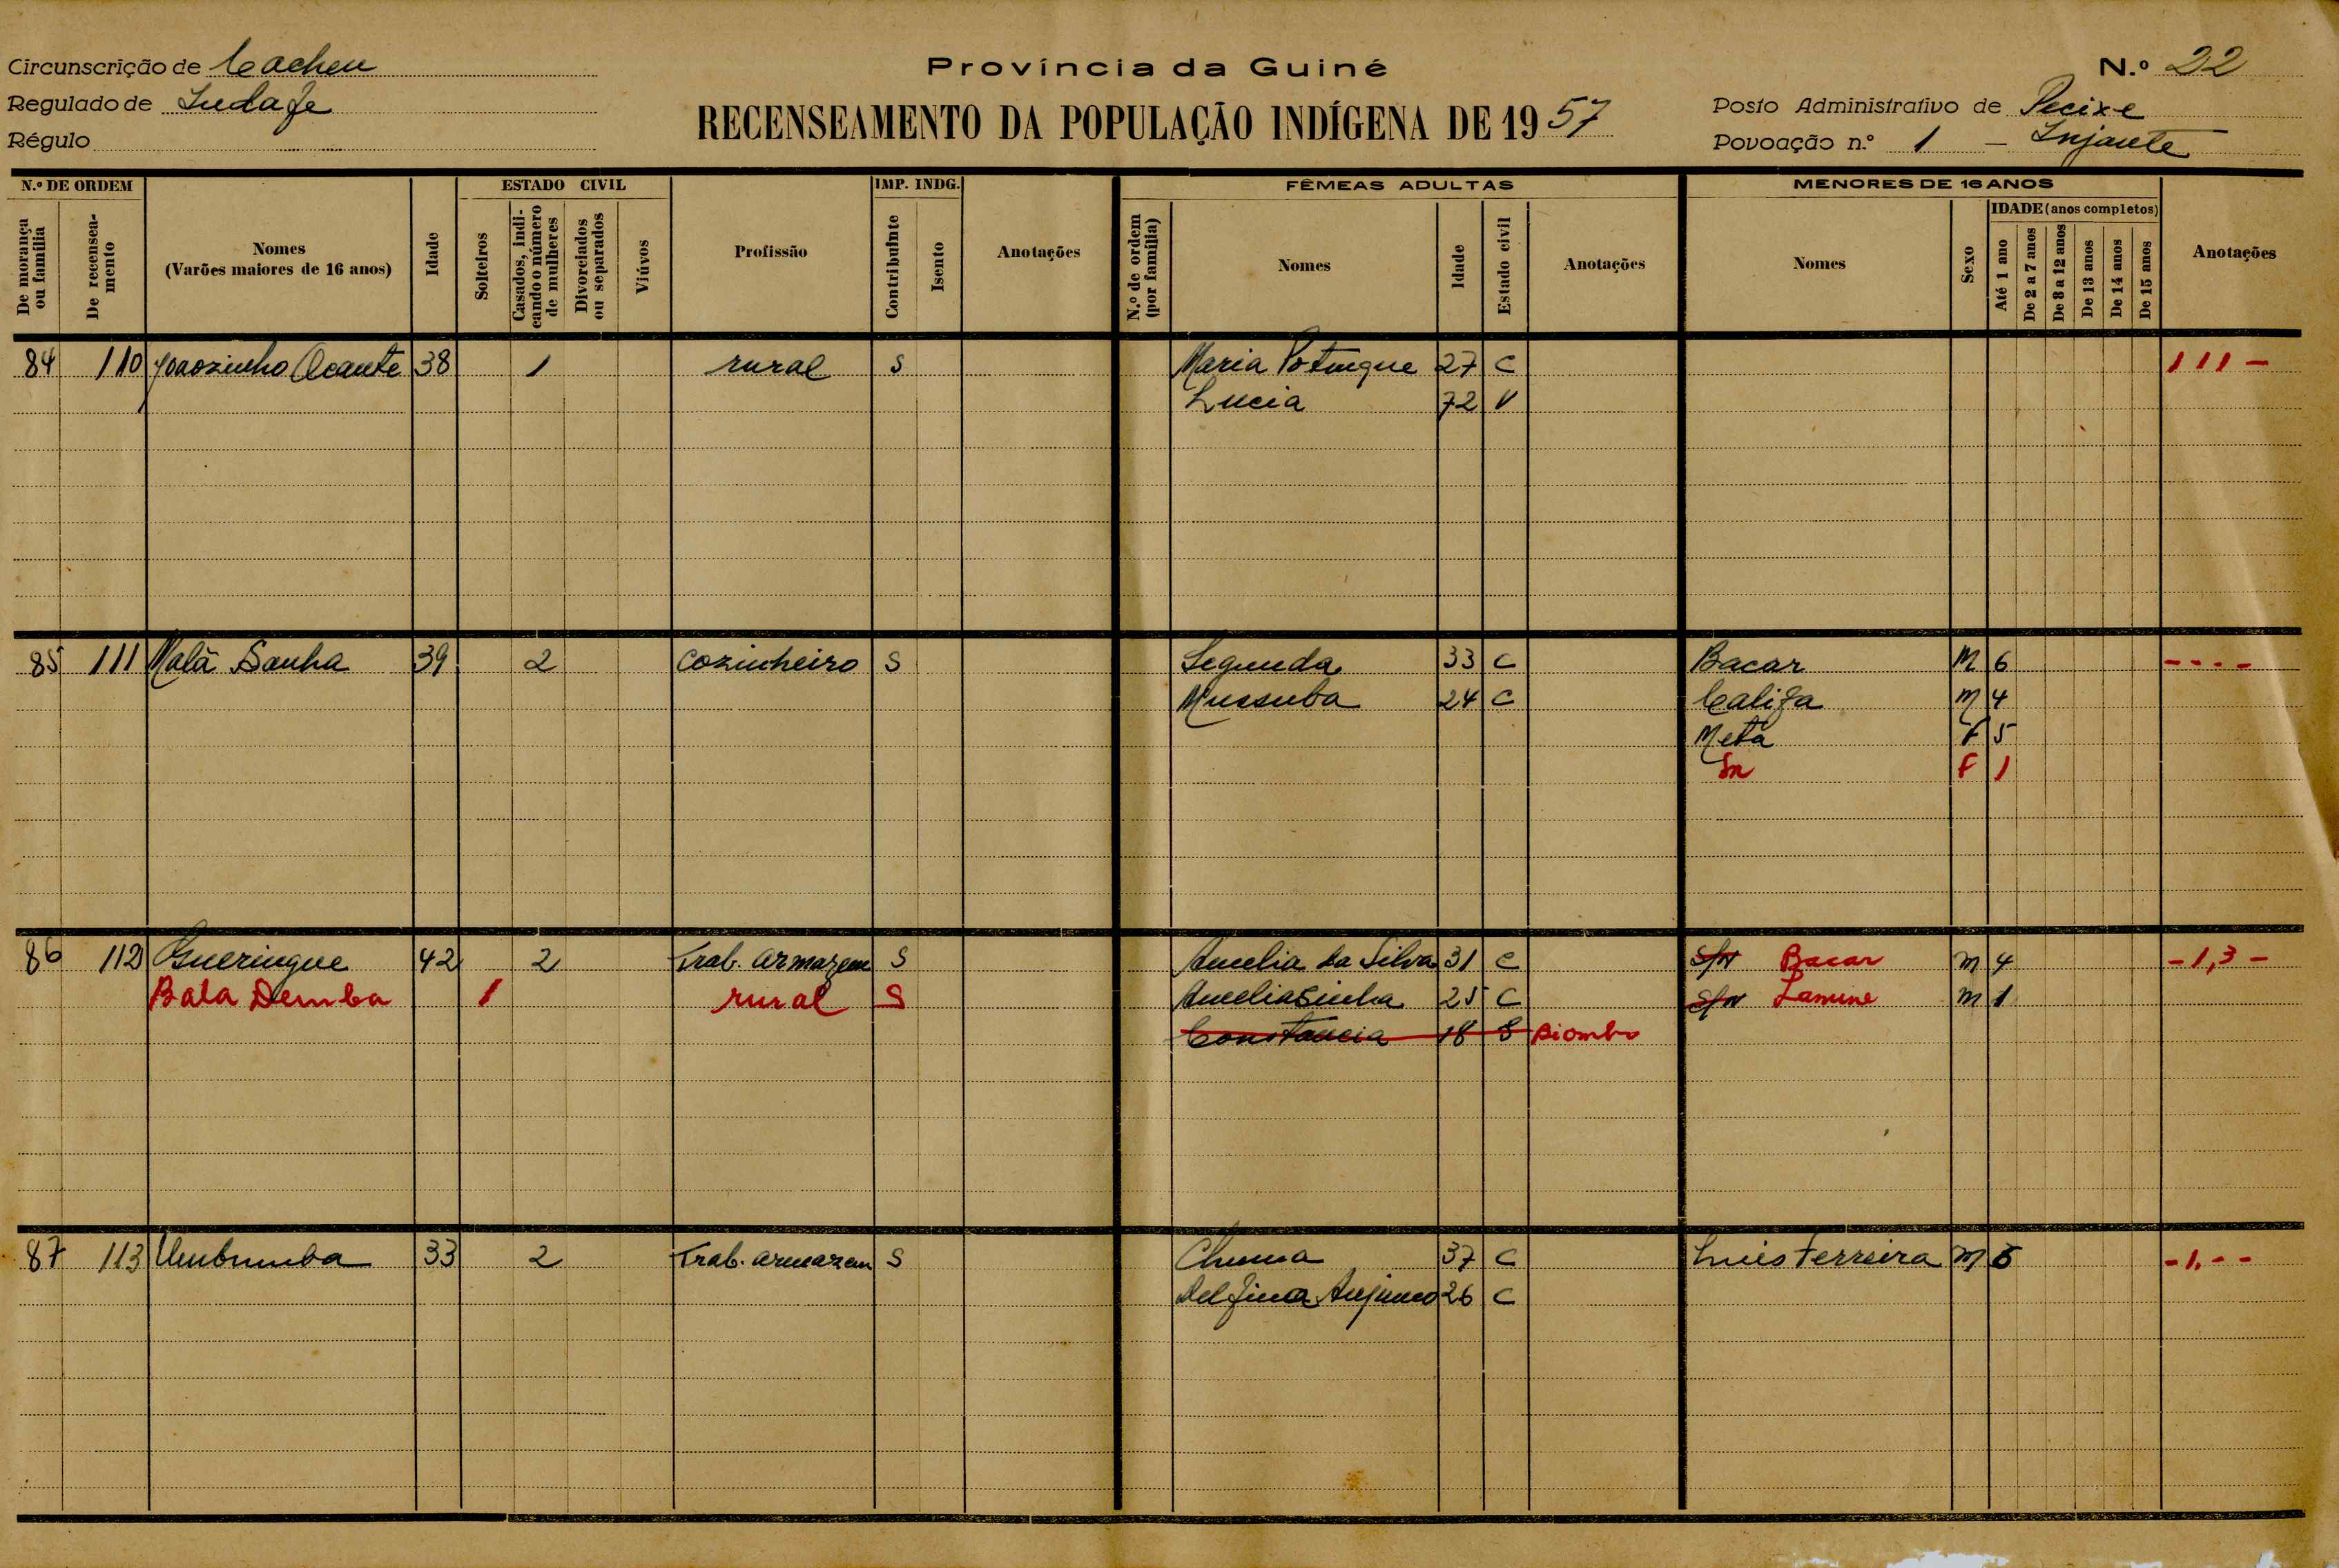 Província da Guiné
N.º 22
Circunscrição de Cacheu
Regulado de
Régulo
RECENSEAMENTO DA POPULAÇÃO INDÍGENA DE 1957
Posto Administrativo de Pecixe
Povoação n.º 1 - Injante
N.º DE ORDEM
De morança ou família
De recenseamento
Nomes
(Varões maiores de 16 anos)
Idade
ESTADO CIVIL
Solteiros
Casados, indicando o número de mulheres
Divorciados ou separados
Viúvos
Profissão
IMP. INDG.
Contribuinte
Isento
Anotações
FÊMEAS ADULTAS
N.º de ordem (por família)
Nomes
Idade
Estado civil
Anotações
MENORES DE 16 ANOS
Nomes
Sexo
IDADE (anos completos)
Até 1 ano
De 2 a 7 anos
De 8 a 12 anos
De 13 anos
De 14 anos
De 15 anos
Anotações
84 110 Joaozinho Ocante 38 1 rural S Maria Potungue 27 C 1 1 1 -
Lucia 72 V
85 111 Malã Sanha 39 2 cozinheiro S Segunda 33 C Bacar M 6 - - - -
Mussuba 24 C Califa M 4
Meta F 5
Sn F 1
86 112 Gueringue 42 2 Trab. armazem S Amelia da Silva 31 C S/N Bacar M 4 - 1, 3 -
Bala Demba 1 rural S Ameliasinha 25 C S/N Lamine M 1
Constancia 18 S Biombo
87 113 Umbumba 33 2 Trab. armazem S 37 C Luis Ferreira M 6 - 1, - -
Delfina 26 C